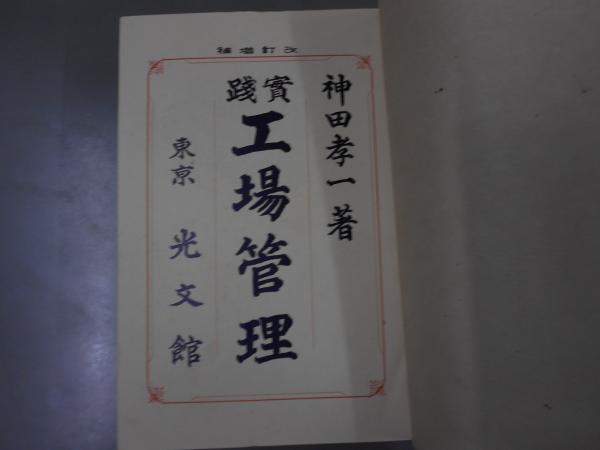 改訂増補
神田孝一著
實踐
工場管理
東京 光文館